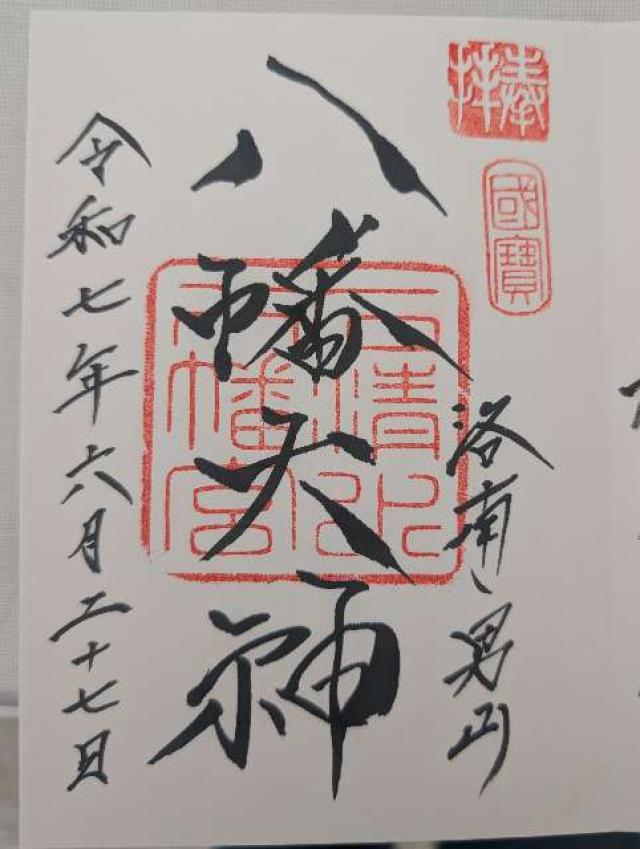 奉拝
國寶
洛南、男山
八幡大神
石清水
八幡宮
令和七年六月二十七日